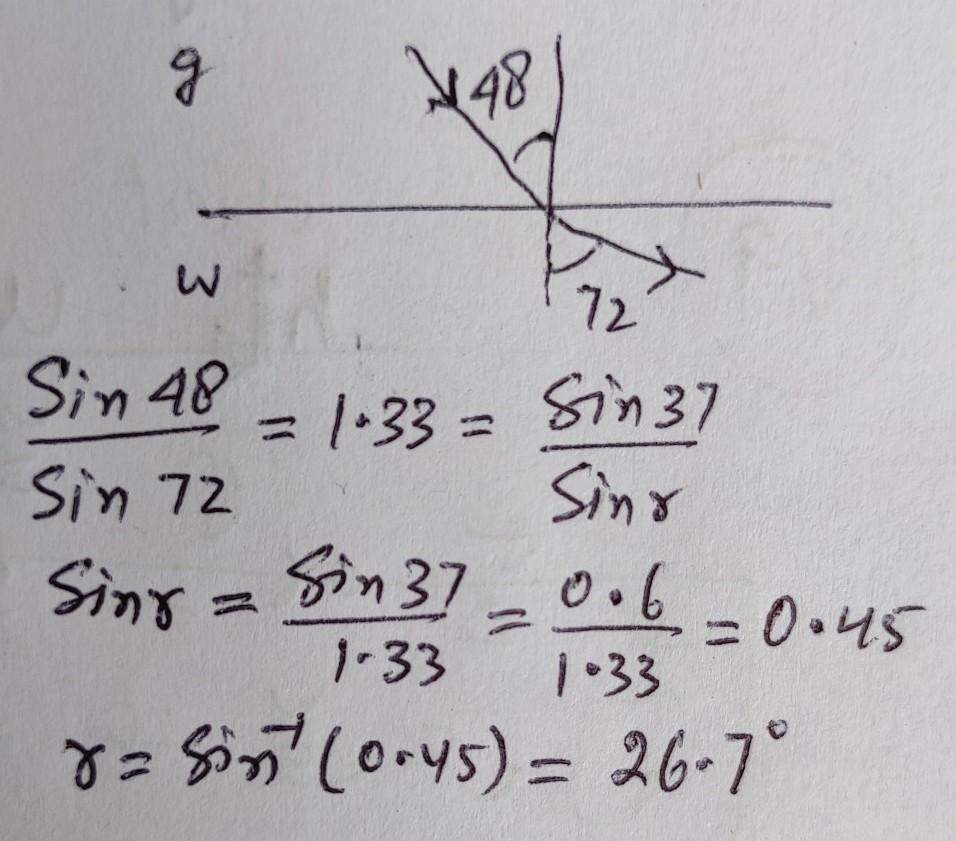 g 48
w 72
Sin 48 / Sin 72 = 1.33 = Sin 37 / Sin r
Sin r = Sin 37 / 1.33 = 0.6 / 1.33 = 0.45
r = Sin⁻¹ (0.45) = 26.7°